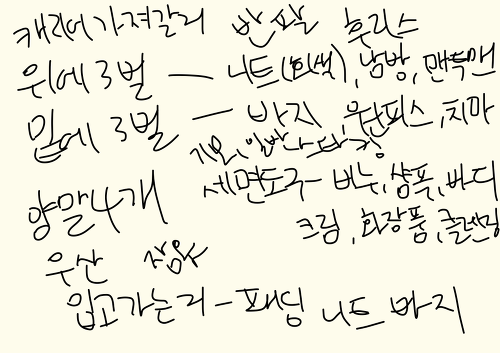 캐리어 가져갈거 반팔 후리스
위에 3벌 — 니트(회색), 남방, 맨투맨
밑에 3벌 — 바지, 원피스, 치마
기모, 일반 스타킹
양말 4개 세면도구 - 비누, 샴푸, 바디
크림, 화장품, 클렌징
우산 잠옷
입고가는거 - 패딩 니트 바지